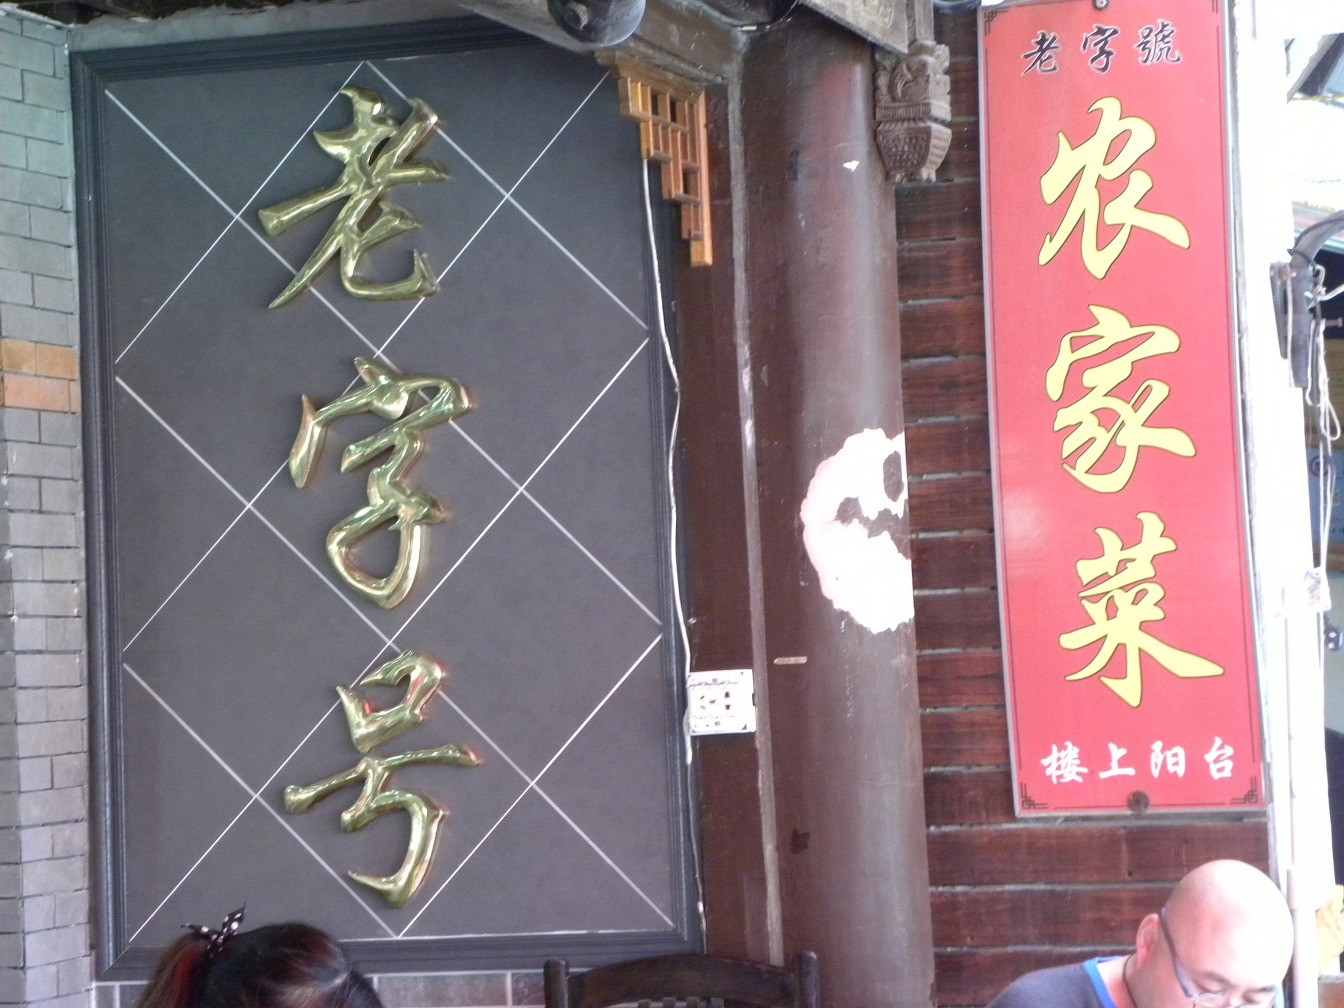 老字号
老字號
农家菜
楼上阳台